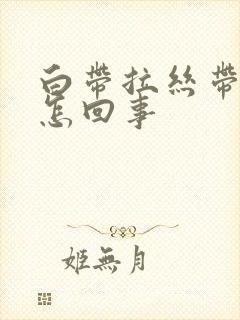 白帶拉絲帶
怎回事
姬無月